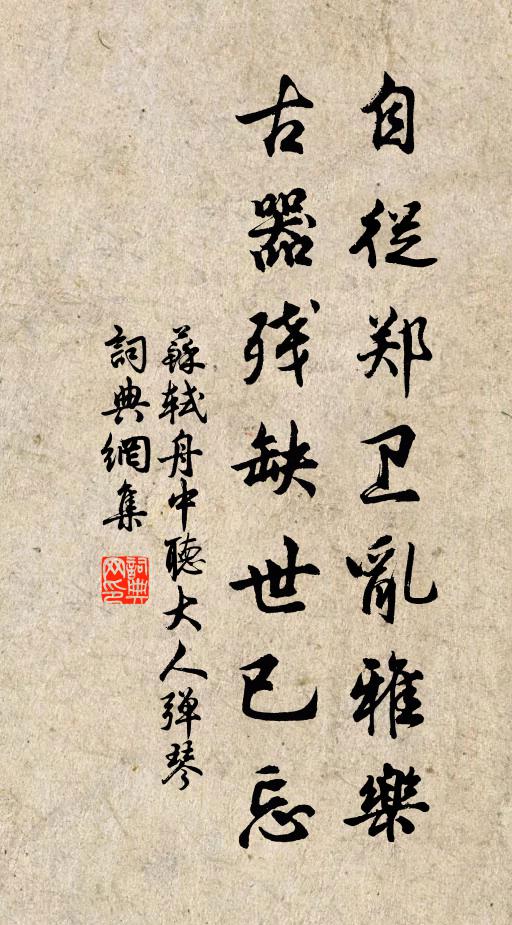 自從郑卫亂雅樂
古器残缺世已忘
蘇軾舟中聽大人弹琴
詞典網集
詞典网印